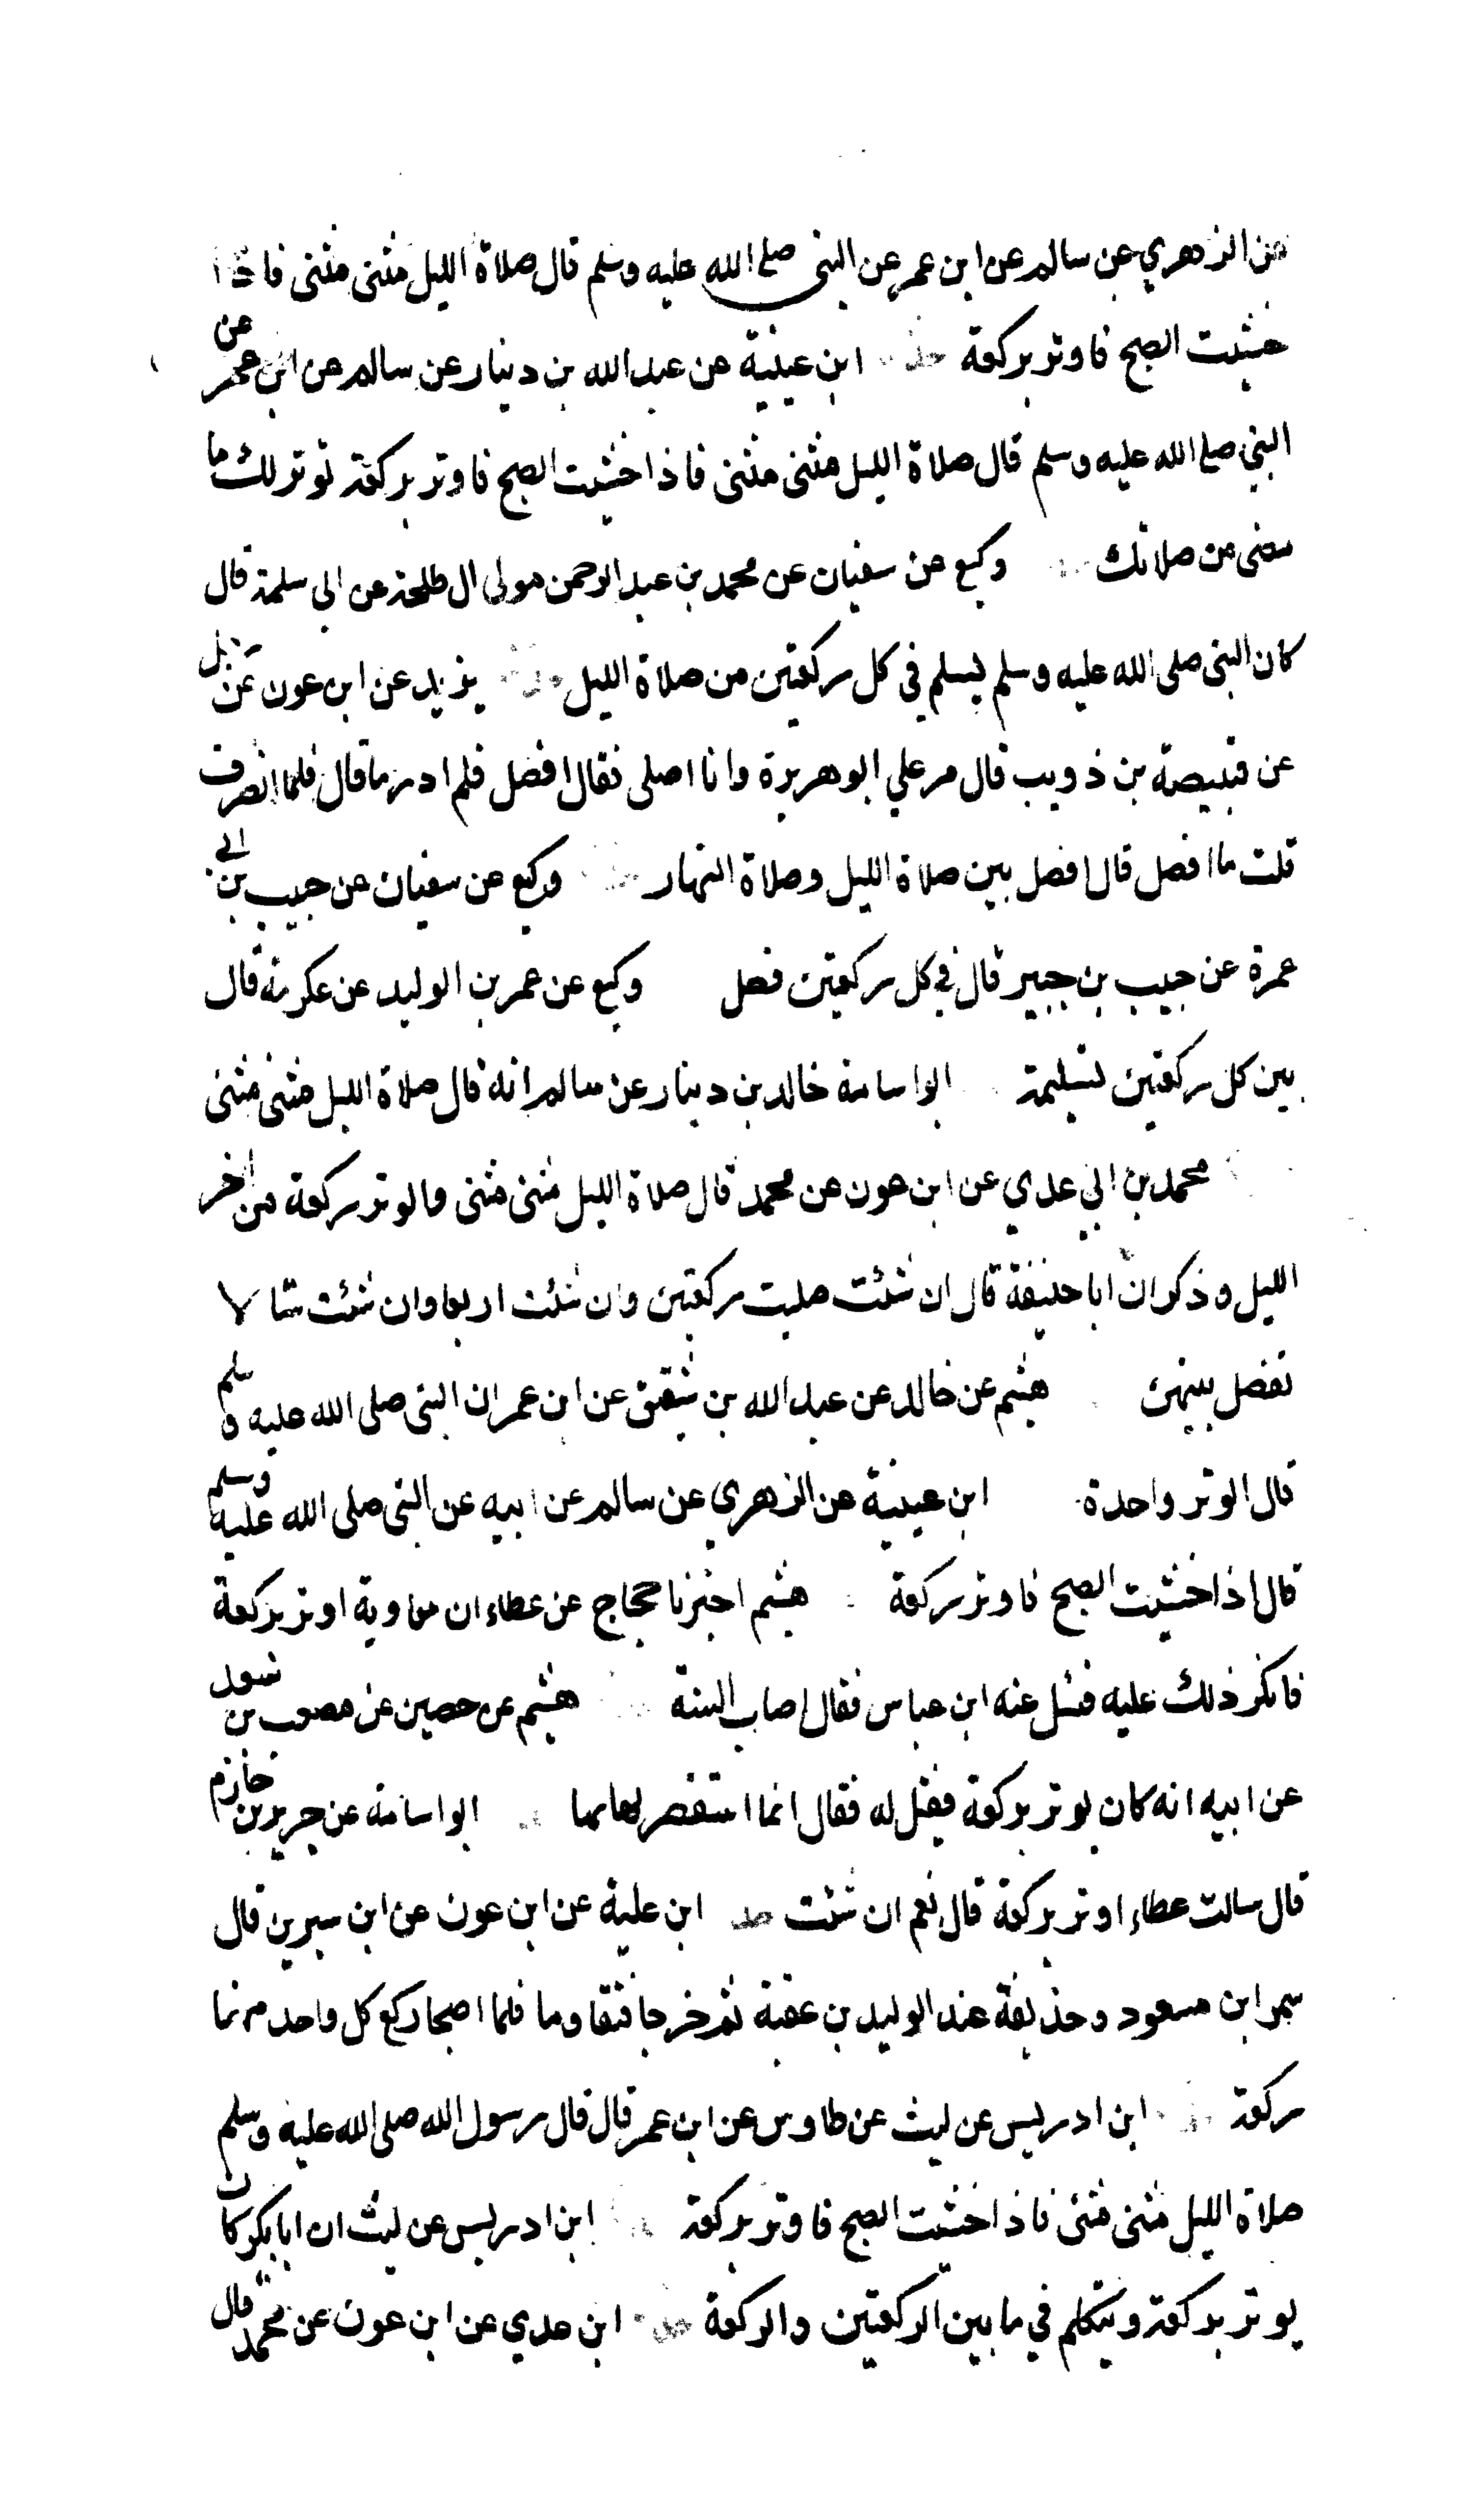 عن الزهري عن سالم عن ابن عمر عن النبي صلى الله عليه وسلم قال صلاة الليل مثنى مثنى فاذا
خشيت الصبح فاوتر بركعة ابن عيينة عن عبد الله بن دينار عن سالم عن ابن عمر عن
النبي صلى الله عليه وسلم قال صلاة الليل مثنى مثنى فاذا خشيت الصبح فاوتر بركعة توتر لك ما
مضى من صلاتك وكيع عن سفيان عن محمد بن عبد الرحمن مولى ال طلحة عن ابي سلمة قال
كان النبي صلى الله عليه وسلم يسلم في كل ركعتين من صلاة الليل يزيد عن ابن عون عن
عن قبيصة بن ذويب قال مر علي ابو هريرة وانا اصلي فقال افصل فلم ادر ما قال فلما انصرف
قلت ما افصل قال افصل بين صلاة الليل وصلاة النهار وكيع عن سفيان عن حبيب بن ابي
عمرة عن حبيب بن جبير قال في كل ركعتين فصل وكيع عن عمر بن الوليد عن عكرمة قال
بين كل ركعتين تسليمة ابو اسامة خالد بن دينار عن سالم انه قال صلاة الليل مثنى مثنى
محمد بن ابي عدي عن ابن عون عن محمد قال صلاة الليل مثنى مثنى والوتر ركعة من اخر
الليل وذكر ان ابا حنيفة قال ان شئت صليت ركعتين وان شئت اربعا وان شئت ستا لا
تفصل بينهن هشيم عن خالد عن عبد الله بن شقيق عن ابن عمر ان النبي صلى الله عليه وسلم
قال الوتر واحدة ابن عيينة عن الزهري عن سالم عن ابيه عن النبي صلى الله عليه وسلم
قال اذا خشيت الصبح فاوتر بركعة هشيم اخبرنا حجاج عن عطاء ان معاوية اوتر بركعة
فانكر ذلك عليه فسئل عنه ابن عباس فقال اصاب السنة هشيم عن حصين عن مصعب بن سعد
عن ابيه انه كان يوتر بركعة فقيل له فقال انما استقصر بها ابو اسامة عن جرير بن حازم
قال سالت عطاء اوتر بركعة قال نعم ان شئت ابن علية عن ابن عون عن ابن سيرين قال
سمر ابن مسعود وحذيفة عند الوليد بن عقبة ثم خرجا فتقاوما فلما اصبحا ركع كل واحد منهما
ركعة ابن ادريس عن ليث عن طاوس عن ابن عمر قال قال رسول الله صلى الله عليه وسلم
صلاة الليل مثنى مثنى فاذا خشيت الصبح فاوتر بركعة ابن ادريس عن ليث ان ابا بكر كان
يوتر بركعة ويتكلم في ما بين الركعتين والركعة ابن عدي عن ابن عون عن محمد قال